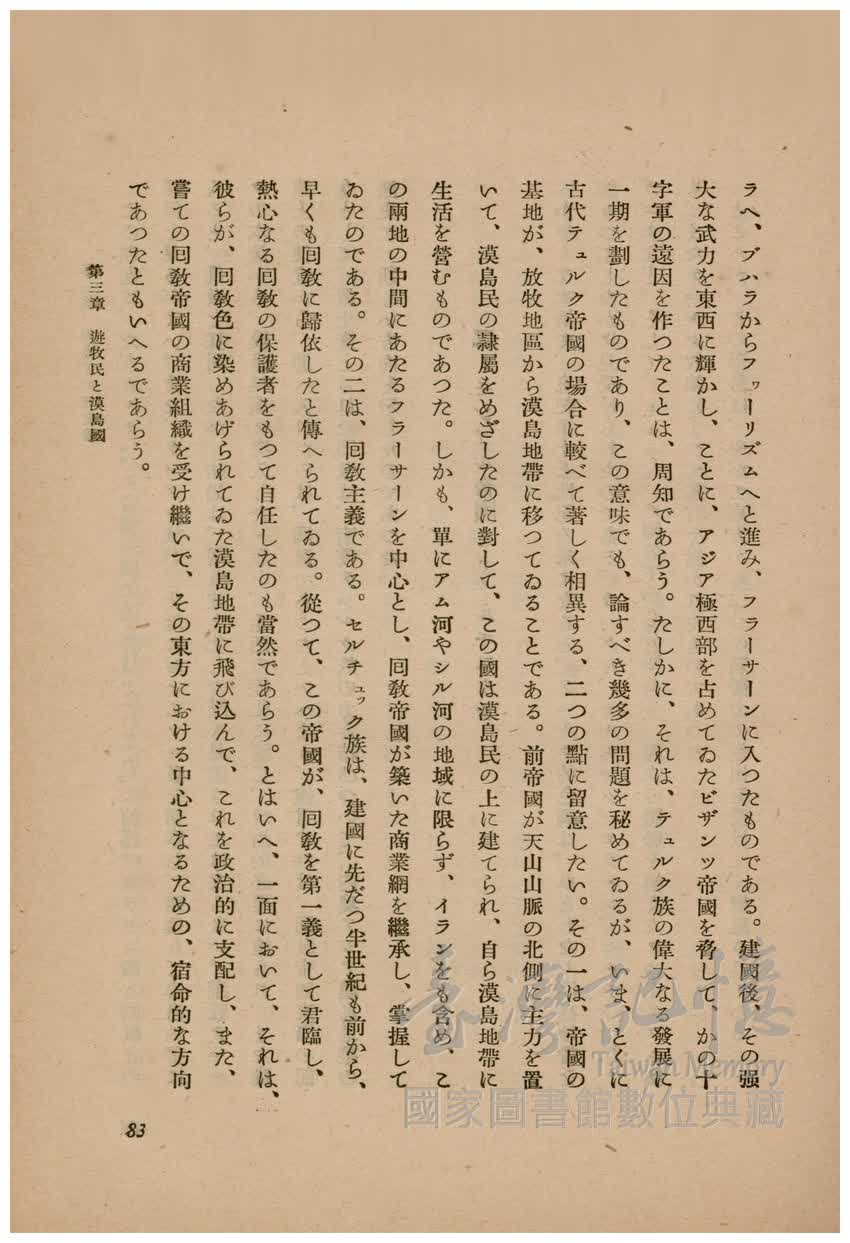 ラへ、ブハラからフワーリズムへと進み、フラーサーンに入つたものである。建國後、その强
大な武力を東西に輝かし、ことに、アジア極西部を占めてゐたビザンツ帝國を脅して、かの十
字軍の遠因を作つたことは、周知であらう。たしかに、それは、テュルク族の偉大なる發展に
一期を劃したものであり、この意味でも、論すべき幾多の問題を秘めてゐるが、いま、とくに
古代テュルク帝國の場合に較べて著しく相異する、二つの點に留意したい。その一は、帝國の
基地が、放牧地區から漠島地帶に移つてゐることである。前帝國が天山山脈の北側に主力を置
いて、漠島民の隷屬をめざしたのに對して、この國は漠島民の上に建てられ、自ら漠島地帶に
生活を營むものであつた。しかも、單にアム河やシル河の地域に限らず、イランをも含め、こ
の兩地の中間にあたるフラーサーンを中心とし、回敎帝國が築いた商業網を繼承し、掌握して
ゐたのである。その二は、回敎主義である。セルヂュック族は、建國に先だつ半世紀も前から、
早くも回敎に歸依したと傳へられてゐる。從つて、この帝國が、回敎を第一義として君臨し、
熱心なる回敎の保護者をもつて自任したのも當然であらう。とはいへ、一面において、それは、
彼らが、回敎色に染めあげられてゐた漠島地帶に飛び込んで、これを政治的に支配し、また、
嘗ての回敎帝國の商業組織を受け繼いで、その東方における中心となるための、宿命的な方向
であつたともいへるであらう。
第三章 遊牧民と漠島國
83
臺灣記憶
Taiwan Memory
國家圖書館數位典藏